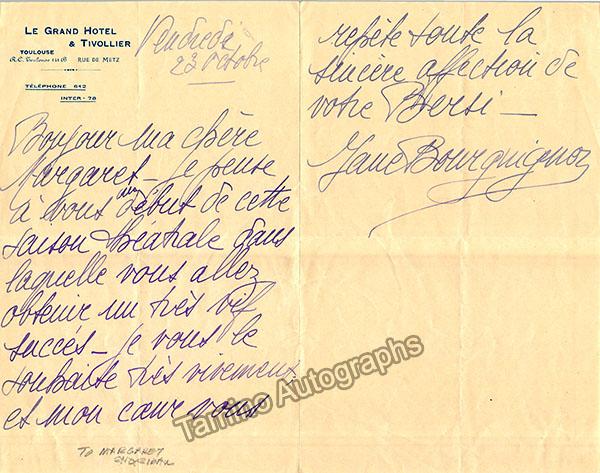 LE GRAND HOTEL
& TIVOLLIER
TOULOUSE
R.C. Toulouse 141 B RUE DE METZ
TÉLÉPHONE 642
INTER - 78
Vendredi
23 Octobre
Bonjour ma chère
Margaret - je pense
à vous au début de cette
saison théatrale dans
laquelle vous allez
obtenir un très vif
succés - je vous le
souhaite très vivement
et mon cœur vous
TO MARGARET
répète toute la
sincère affection de
votre Bersi -
Jane Bourguignon
Tamino Autographs